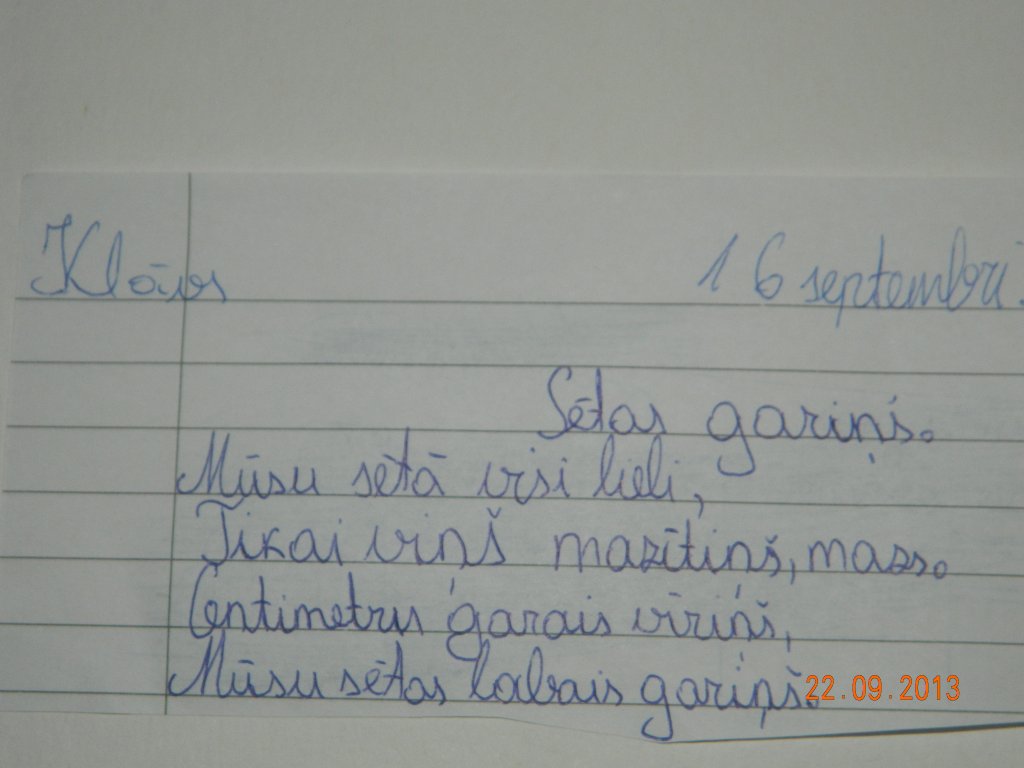 Klāvs 16 septembrī.
Sētas gariņš.
Mūsu sētā visi lieli,
Tikai viņš mazītiņš, mazs.
Centimetru garais vīriņš,
Mūsu sētas labais gariņš.
22.09.2013